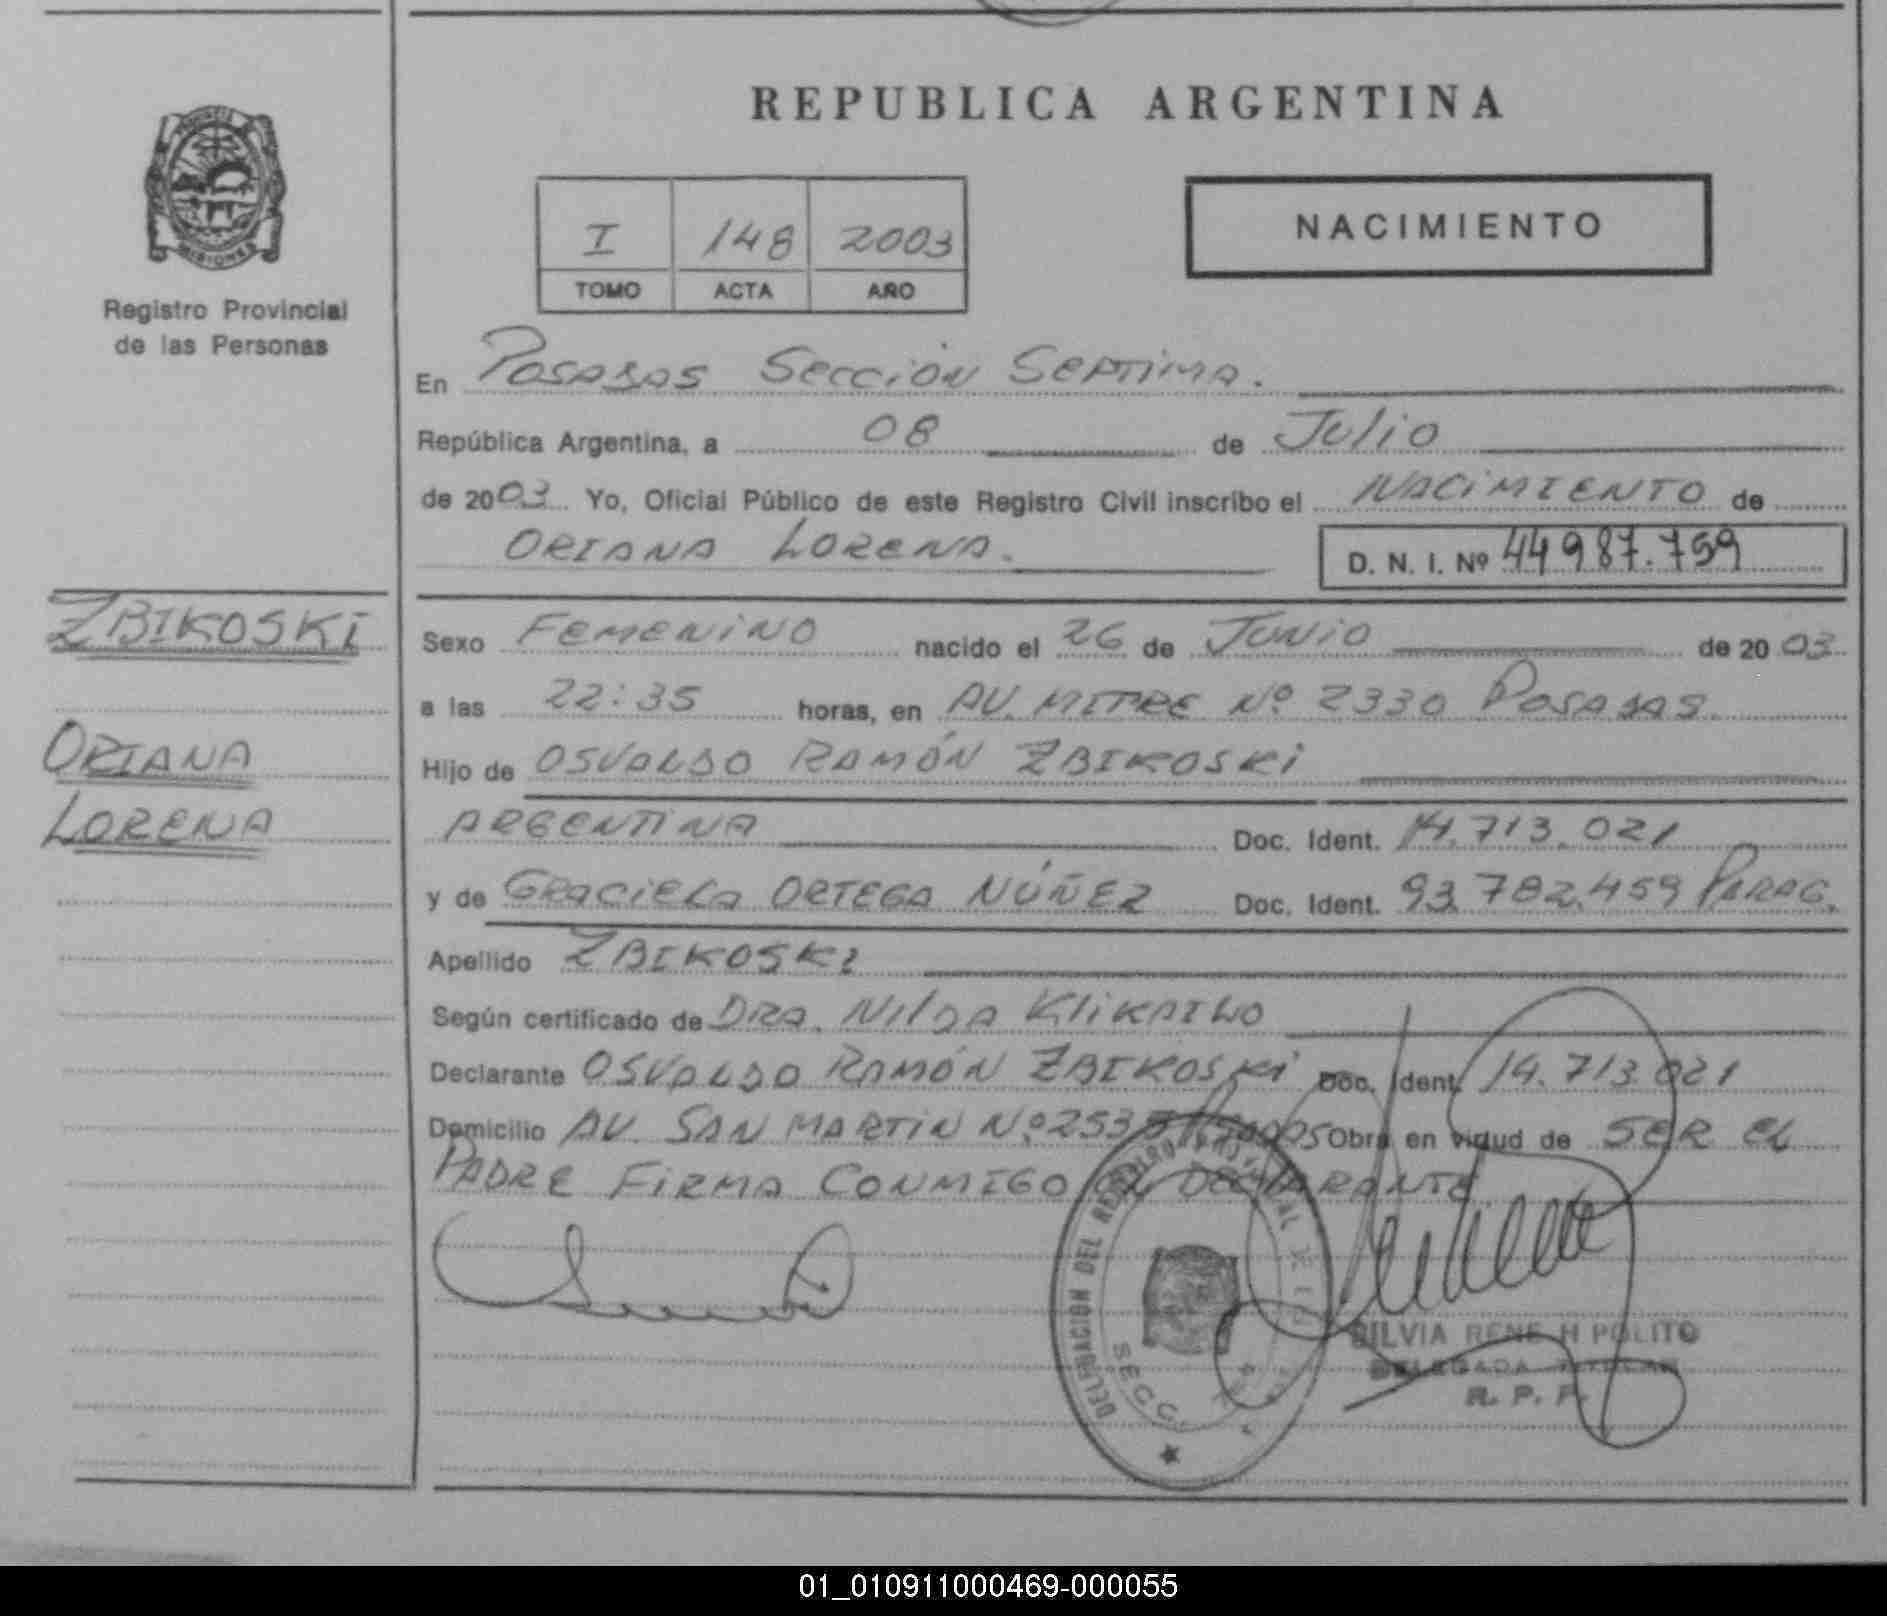 REPUBLICA ARGENTINA
PROVINCIA
MISIONES
Registro Provincial
de las Personas
I 148 2003
TOMO ACTA AÑO
NACIMIENTO
En Posadas Sección Septima.
República Argentina, a 08 de Julio
de 2003 Yo, Oficial Público de este Registro Civil inscribo el NACIMIENTO de
ORIANA LORENA. D. N. I. Nº 44987.759
ZBIKOSKI
ORIANA
LORENA
Sexo FEMENINO nacido el 26 de Junio de 2003
a las 22:35 horas, en AV. MITRE Nº 2330 Posadas.
Hijo de OSVALDO RAMÓN ZBIKOSKI
ARGENTINA Doc. Ident. 14.713.021
y de GRACIELA ORTEGA NÚÑEZ Doc. Ident. 93.782.459 PARAG.
Apellido ZBIKOSKI
Según certificado de DRA. Nilda
Declarante OSVALDO RAMÓN ZBIKOSKI Doc. Ident. 14.713.021
Domicilio AV. SAN MARTIN Nº Obra en virtud de SER EL
PADRE FIRMA CONMIGO EL DECLARANTE
DELEGACION DEL REGISTRO PROVINCIAL DE LAS
SECC.
SILVIA RENE H POLITO
DELEGADA TITULAR
R. P. P.
01_010911000469-000055